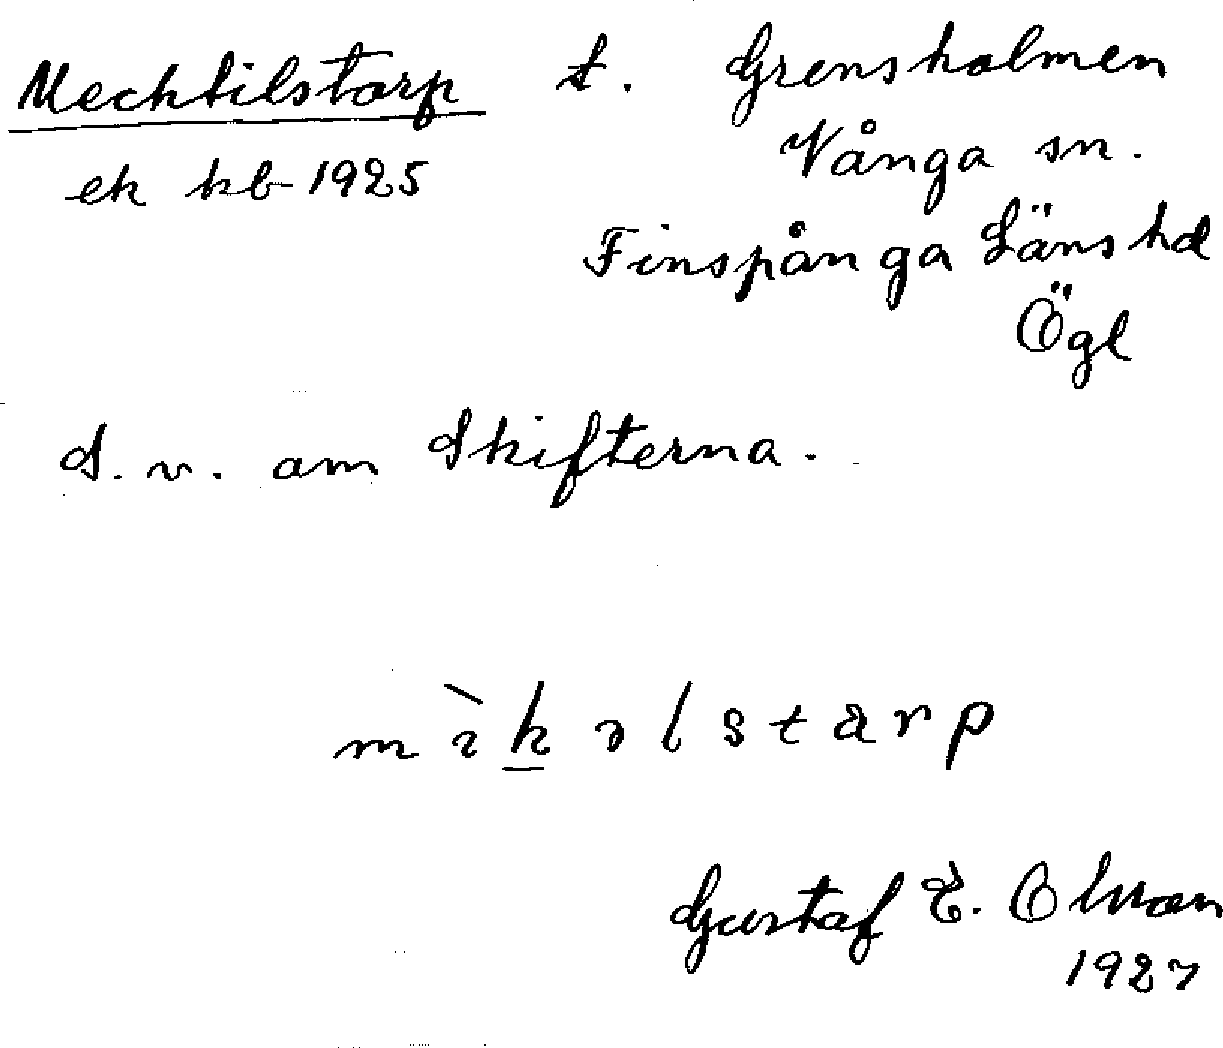 Mechtilstorp t. Grensholmen
ek kb 1925 Vånga sn.
Finspånga Läns hd
Ögl
S. v. om Skifterna.
mìkəlstarp
Gustaf E. Olsson
1927